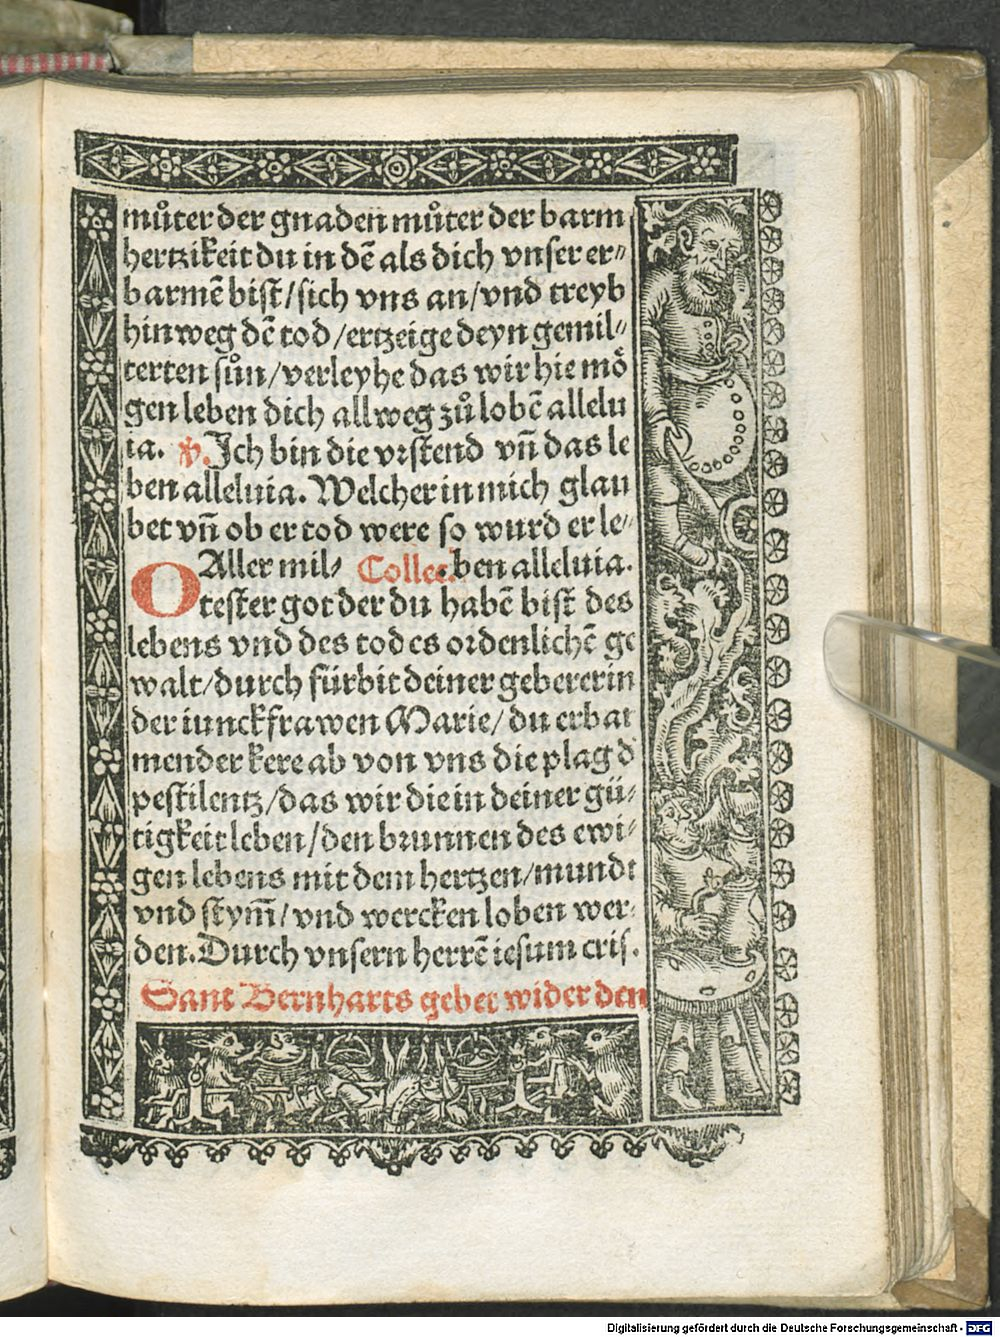 můter der gnaden můter der barm
hertzikeit du in dẽ als dich vnser er⸗
barmẽ bist/sich vns an/vnd treyb
hinweg dẽ tod/ertzeige deyn gemil⸗
terten sůn/verleyhe das wir hie mő
gen leben dich allweg zů lobẽ allelu
ia. ℣. Ich bin die vrstend vñ das le
ben alleluia. Welcher in mich glau
bet vñ ob er tod were so wurd er le⸗
O Aller mil⸗ Collec. ben alleluia.
tester got der du habẽ bist des
lebens vnd des todes ordenlichẽ ge
walt/durch fürbit deiner gebererin
der iunckfrawen Marie/du erbar
mender kere ab von vns die plag d̕
pestilentz/das wir die in deiner gü⸗
tigkeit leben/den brunnen des ewi⸗
gen lebens mit dem hertzen/mundt
vnd stym̃/vnd wercken loben wer⸗
den. Durch vnsern herrẽ iesum cris.
Sant Bernharts gebet wider den
Digitalisierung gefördert durch die Deutsche Forschungsgemeinschaft - DFG